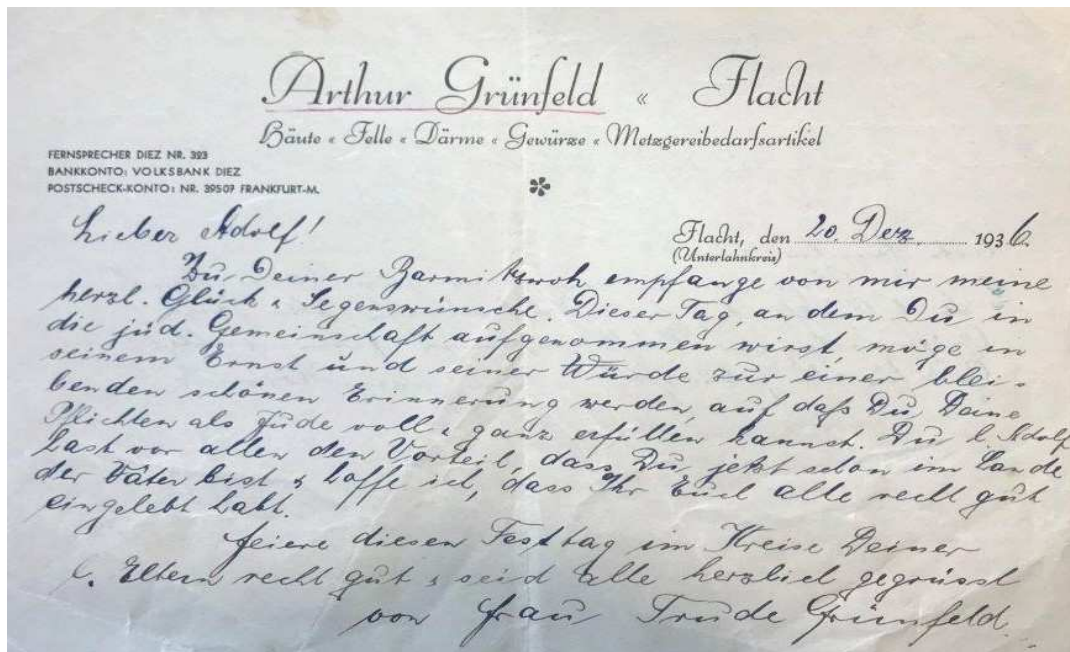 Arthur Grünfeld « Flacht
Häute « Felle « Därme « Gewürze « Metzgereibedarfsartikel
FERNSPRECHER DIEZ NR. 323
BANKKONTO: VOLKSBANK DIEZ
POSTSCHECK-KONTO: NR. 39507 FRANKFURT-M.
Flacht, den 20. Dez. 1936.
(Unterlahnkreis)
Lieber Adolf!
Zu Deiner Barmitzwoh empfange von mir meine
herzl. Glück & Segenswünsche. Dieser Tag, an dem Du in
die jüd. Gemeinschaft aufgenommen wirst, möge in
seinem Ernst und seiner Würde zur einer blei-
benden schönen Erinnerung werden, auf daß Du Deine
Pflichten als Jude voll & ganz erfüllen kannst. Du l. Adolf
hast vor allen den Vorteil, dass Du jetzt schon im Lande
der Väter bist & hoffe ich, dass Ihr Euch alle recht gut
eingelebt habt.
Feiere diesen Festtag im Kreise Deiner
l. Eltern recht gut & seid alle herzlich gegrüsst
von Frau Trude Grünfeld.